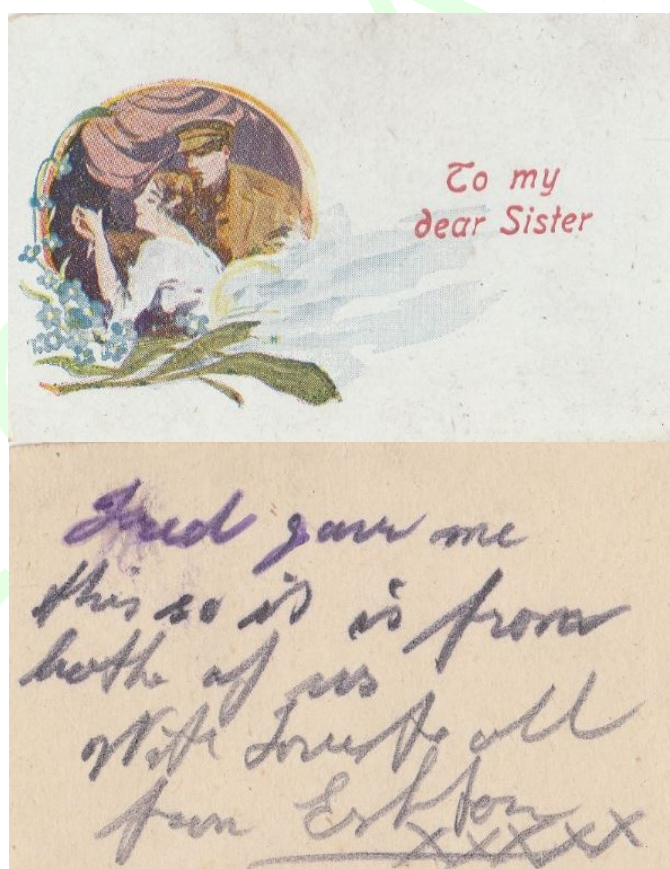 To my
dear Sister
Fred gave me
this so it is from
bothe of us
With Love to all
from
xxxxx